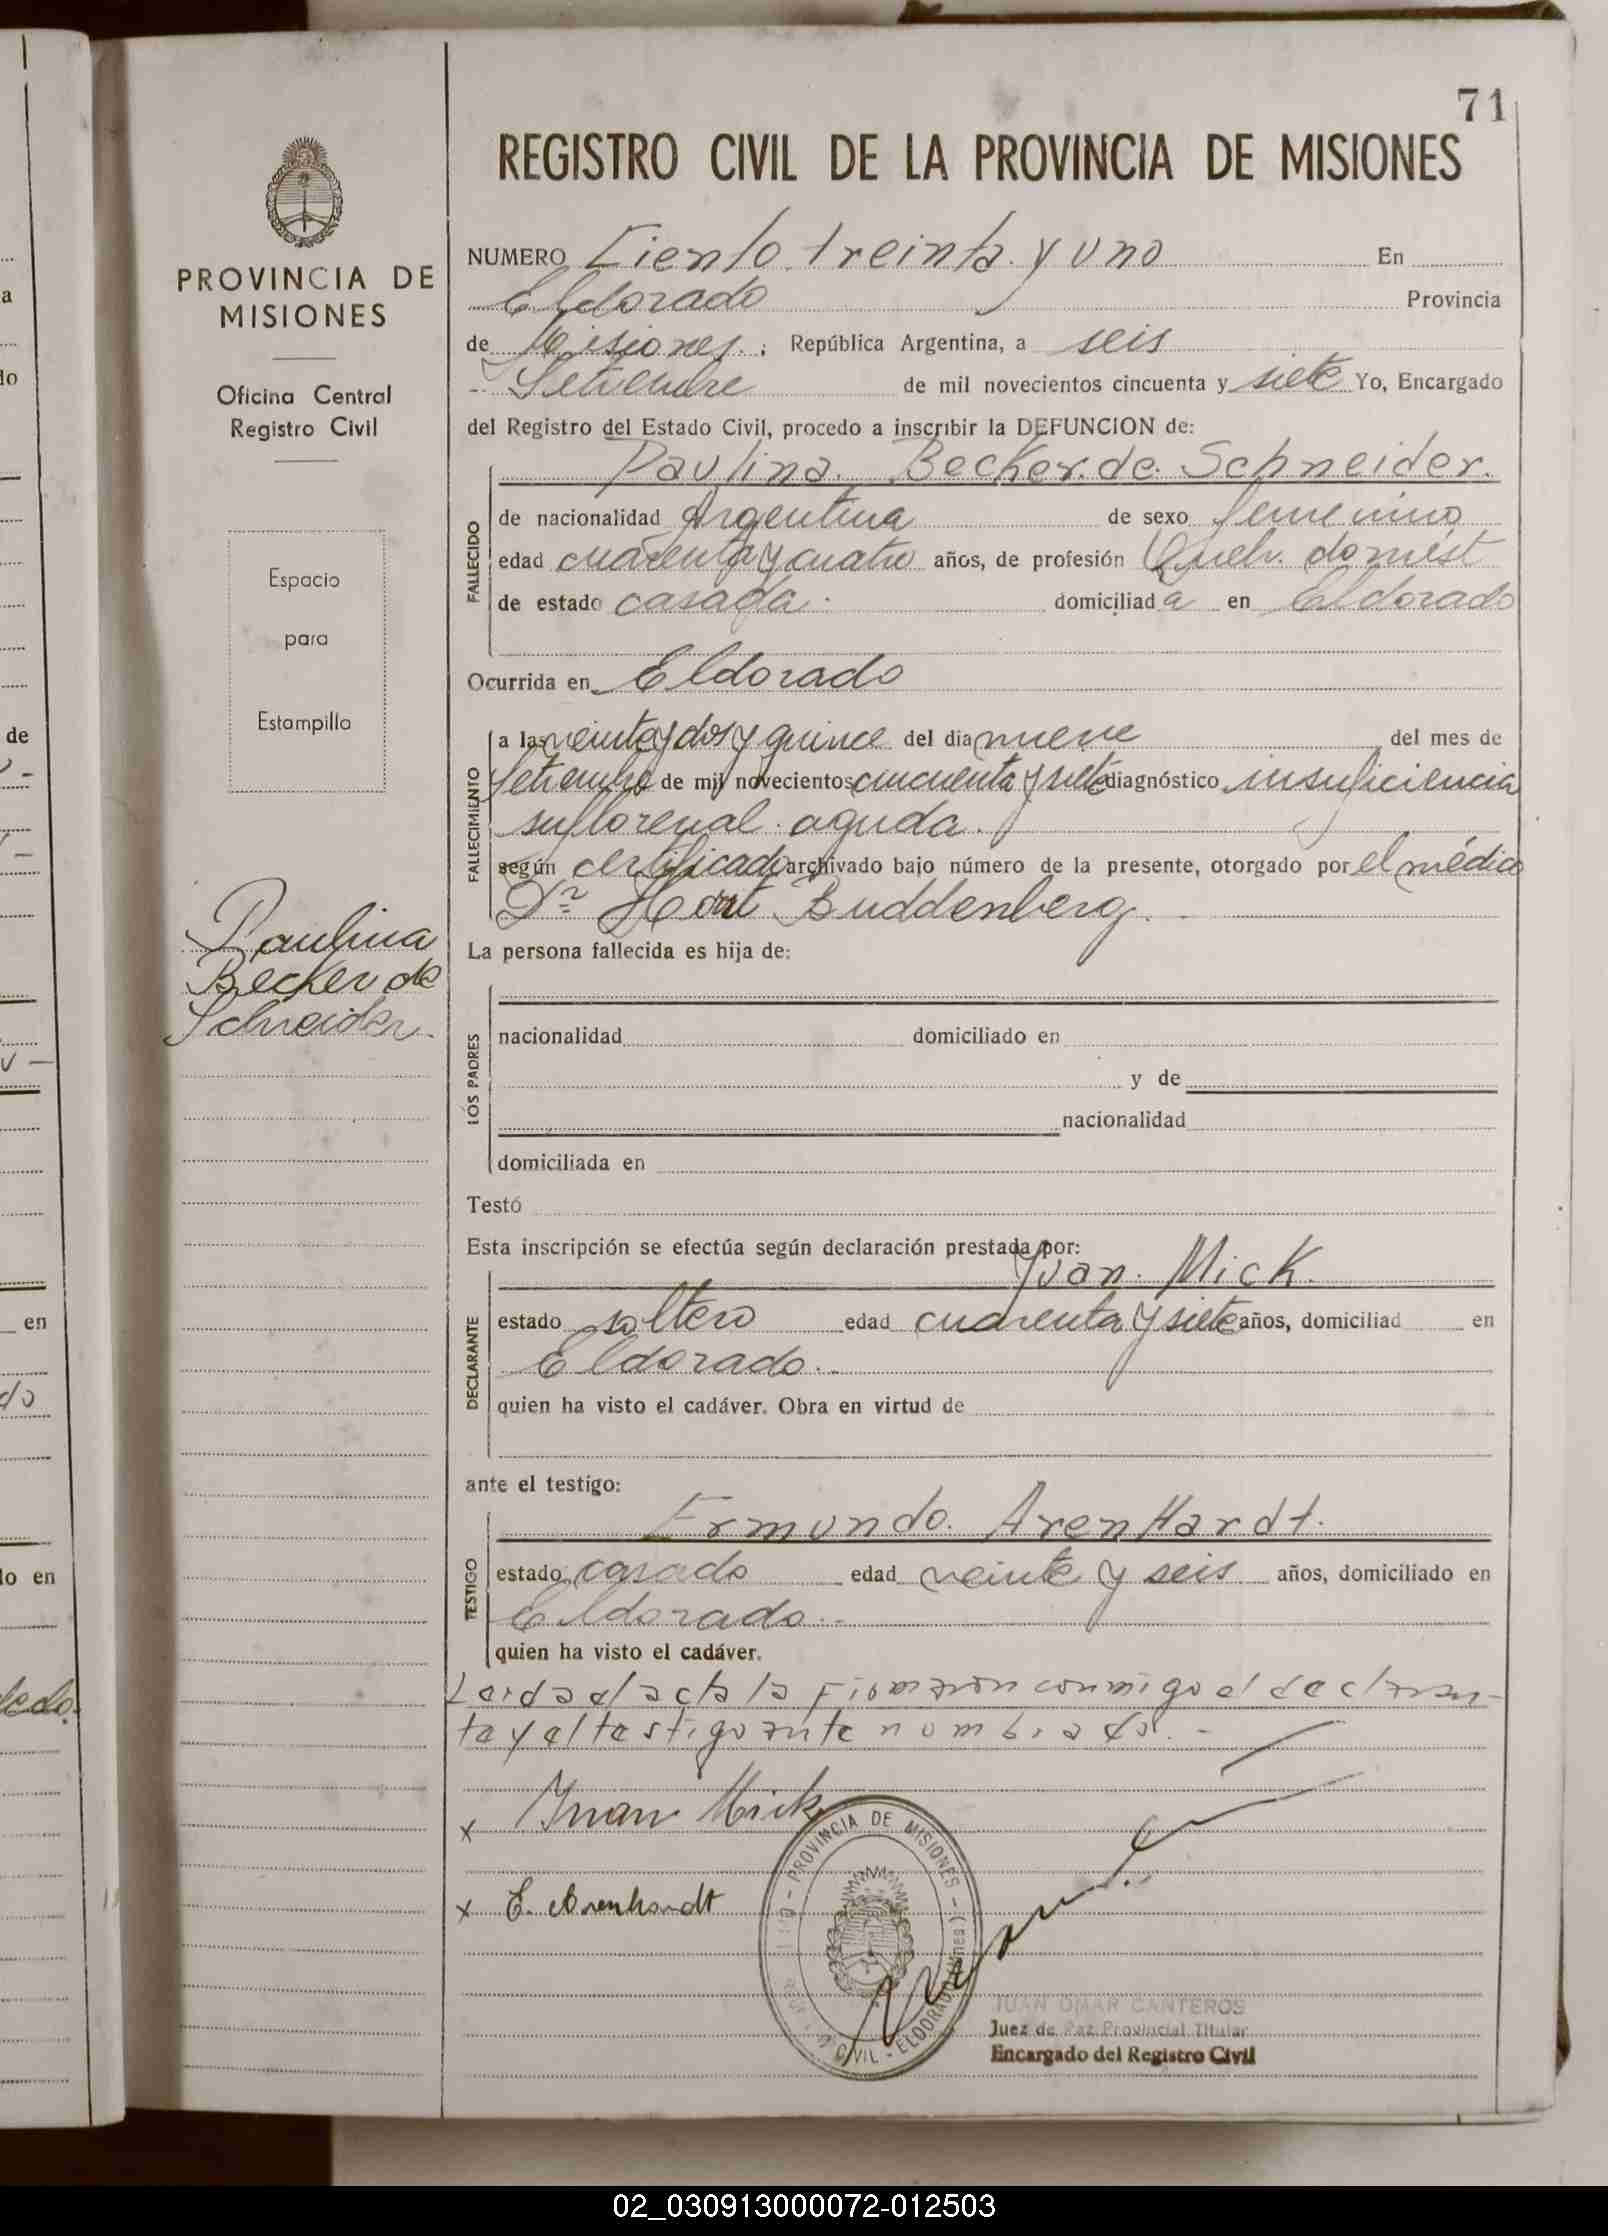 71
REGISTRO CIVIL DE LA PROVINCIA DE MISIONES
PROVINCIA DE
MISIONES
Oficina Central
Registro Civil
Espacio
para
Estampilla
Paulina
Becker de
Schneider.
NUMERO Ciento treinta y uno En
Eldorado Provincia
de Misiones; República Argentina, a seis
Setiembre de mil novecientos cincuenta y siete Yo, Encargado
del Registro del Estado Civil, procedo a inscribir la DEFUNCION de:
Paulina Becker de Schneider.
FALLECIDO
de nacionalidad Argentina de sexo femenino
edad cuarenta y cuatro años, de profesión Queh. domést
de estado casada. domiciliada en Eldorado
Ocurrida en Eldorado
FALLECIMIENTO
a las veinte y dos y quince del dia nueve del mes de
Setiembre de mil novecientos cincuenta y siete diagnóstico insuficiencia
aguda.
según certificado archivado bajo número de la presente, otorgado por el médico
Dr Buddenberg.
La persona fallecida es hija de:
LOS PADRES
nacionalidad domiciliado en
y de
nacionalidad
domiciliada en
Testó
Esta inscripción se efectúa según declaración prestada por:
Juan Mick.
DECLARANTE
estado soltero edad cuarenta y siete años, domiciliad en
Eldorado.
quien ha visto el cadáver. Obra en virtud de
ante el testigo:
Ermundo Arenhardt.
TESTIGO
estado casado edad veinte y seis años, domiciliado en
Eldorado.
quien ha visto el cadáver.
Leida el acta la firmaron conmigo el declaran-
te y el testigo ante nombrado.-
x Juan Mick
x E. Arenhardt
PROVINCIA DE MISIONES
CIVIL - ELDORADO (Mnes.)
JUAN OMAR CANTEROS
Juez de Paz Provincial Titular
Encargado del Registro Civil
de
en
do en
02_030913000072-012503